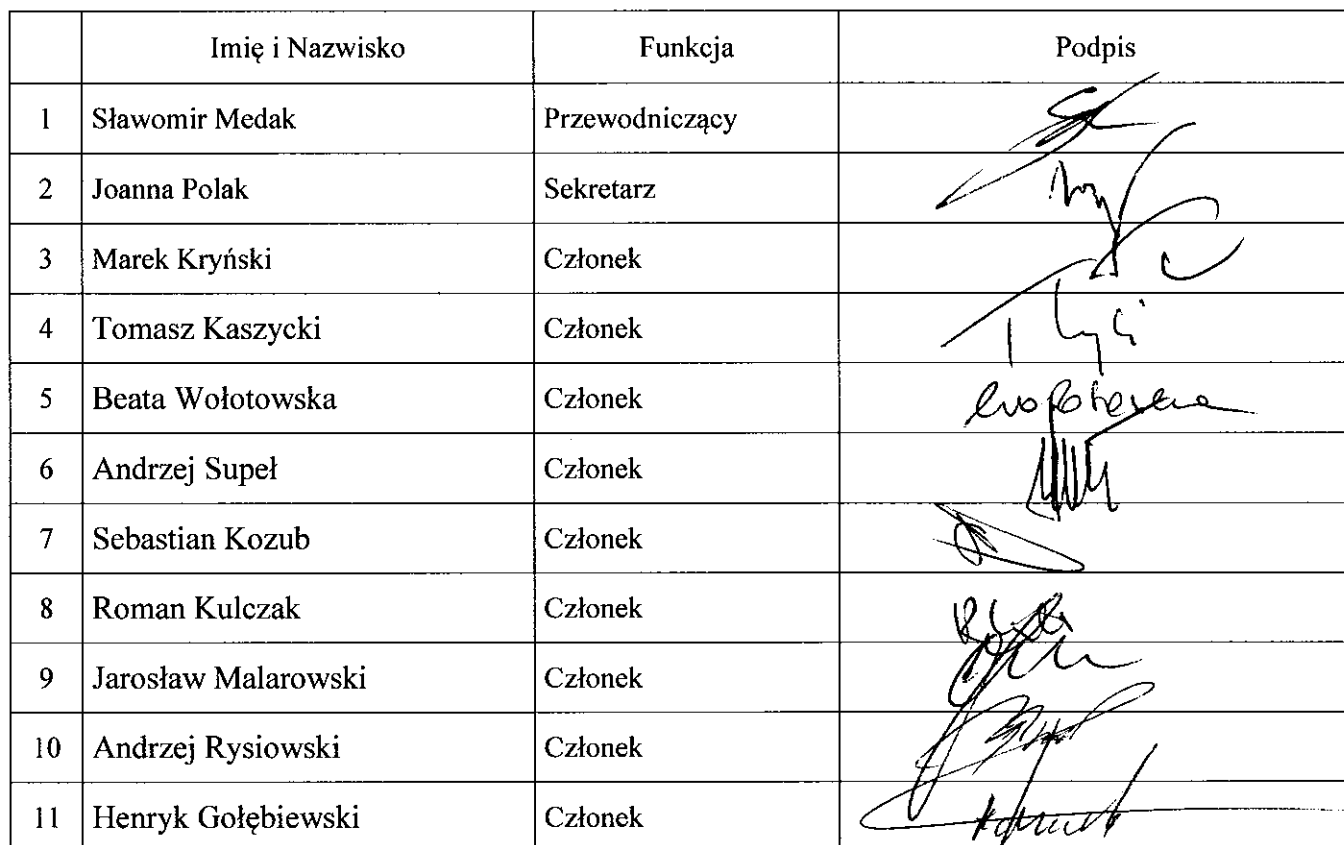 Imię i Nazwisko Funkcja Podpis
1 Sławomir Medak Przewodniczący
2 Joanna Polak Sekretarz
3 Marek Kryński Członek
4 Tomasz Kaszycki Członek
5 Beata Wołotowska Członek
6 Andrzej Supeł Członek
7 Sebastian Kozub Członek
8 Roman Kulczak Członek
9 Jarosław Malarowski Członek
10 Andrzej Rysiowski Członek
11 Henryk Gołębiewski Członek